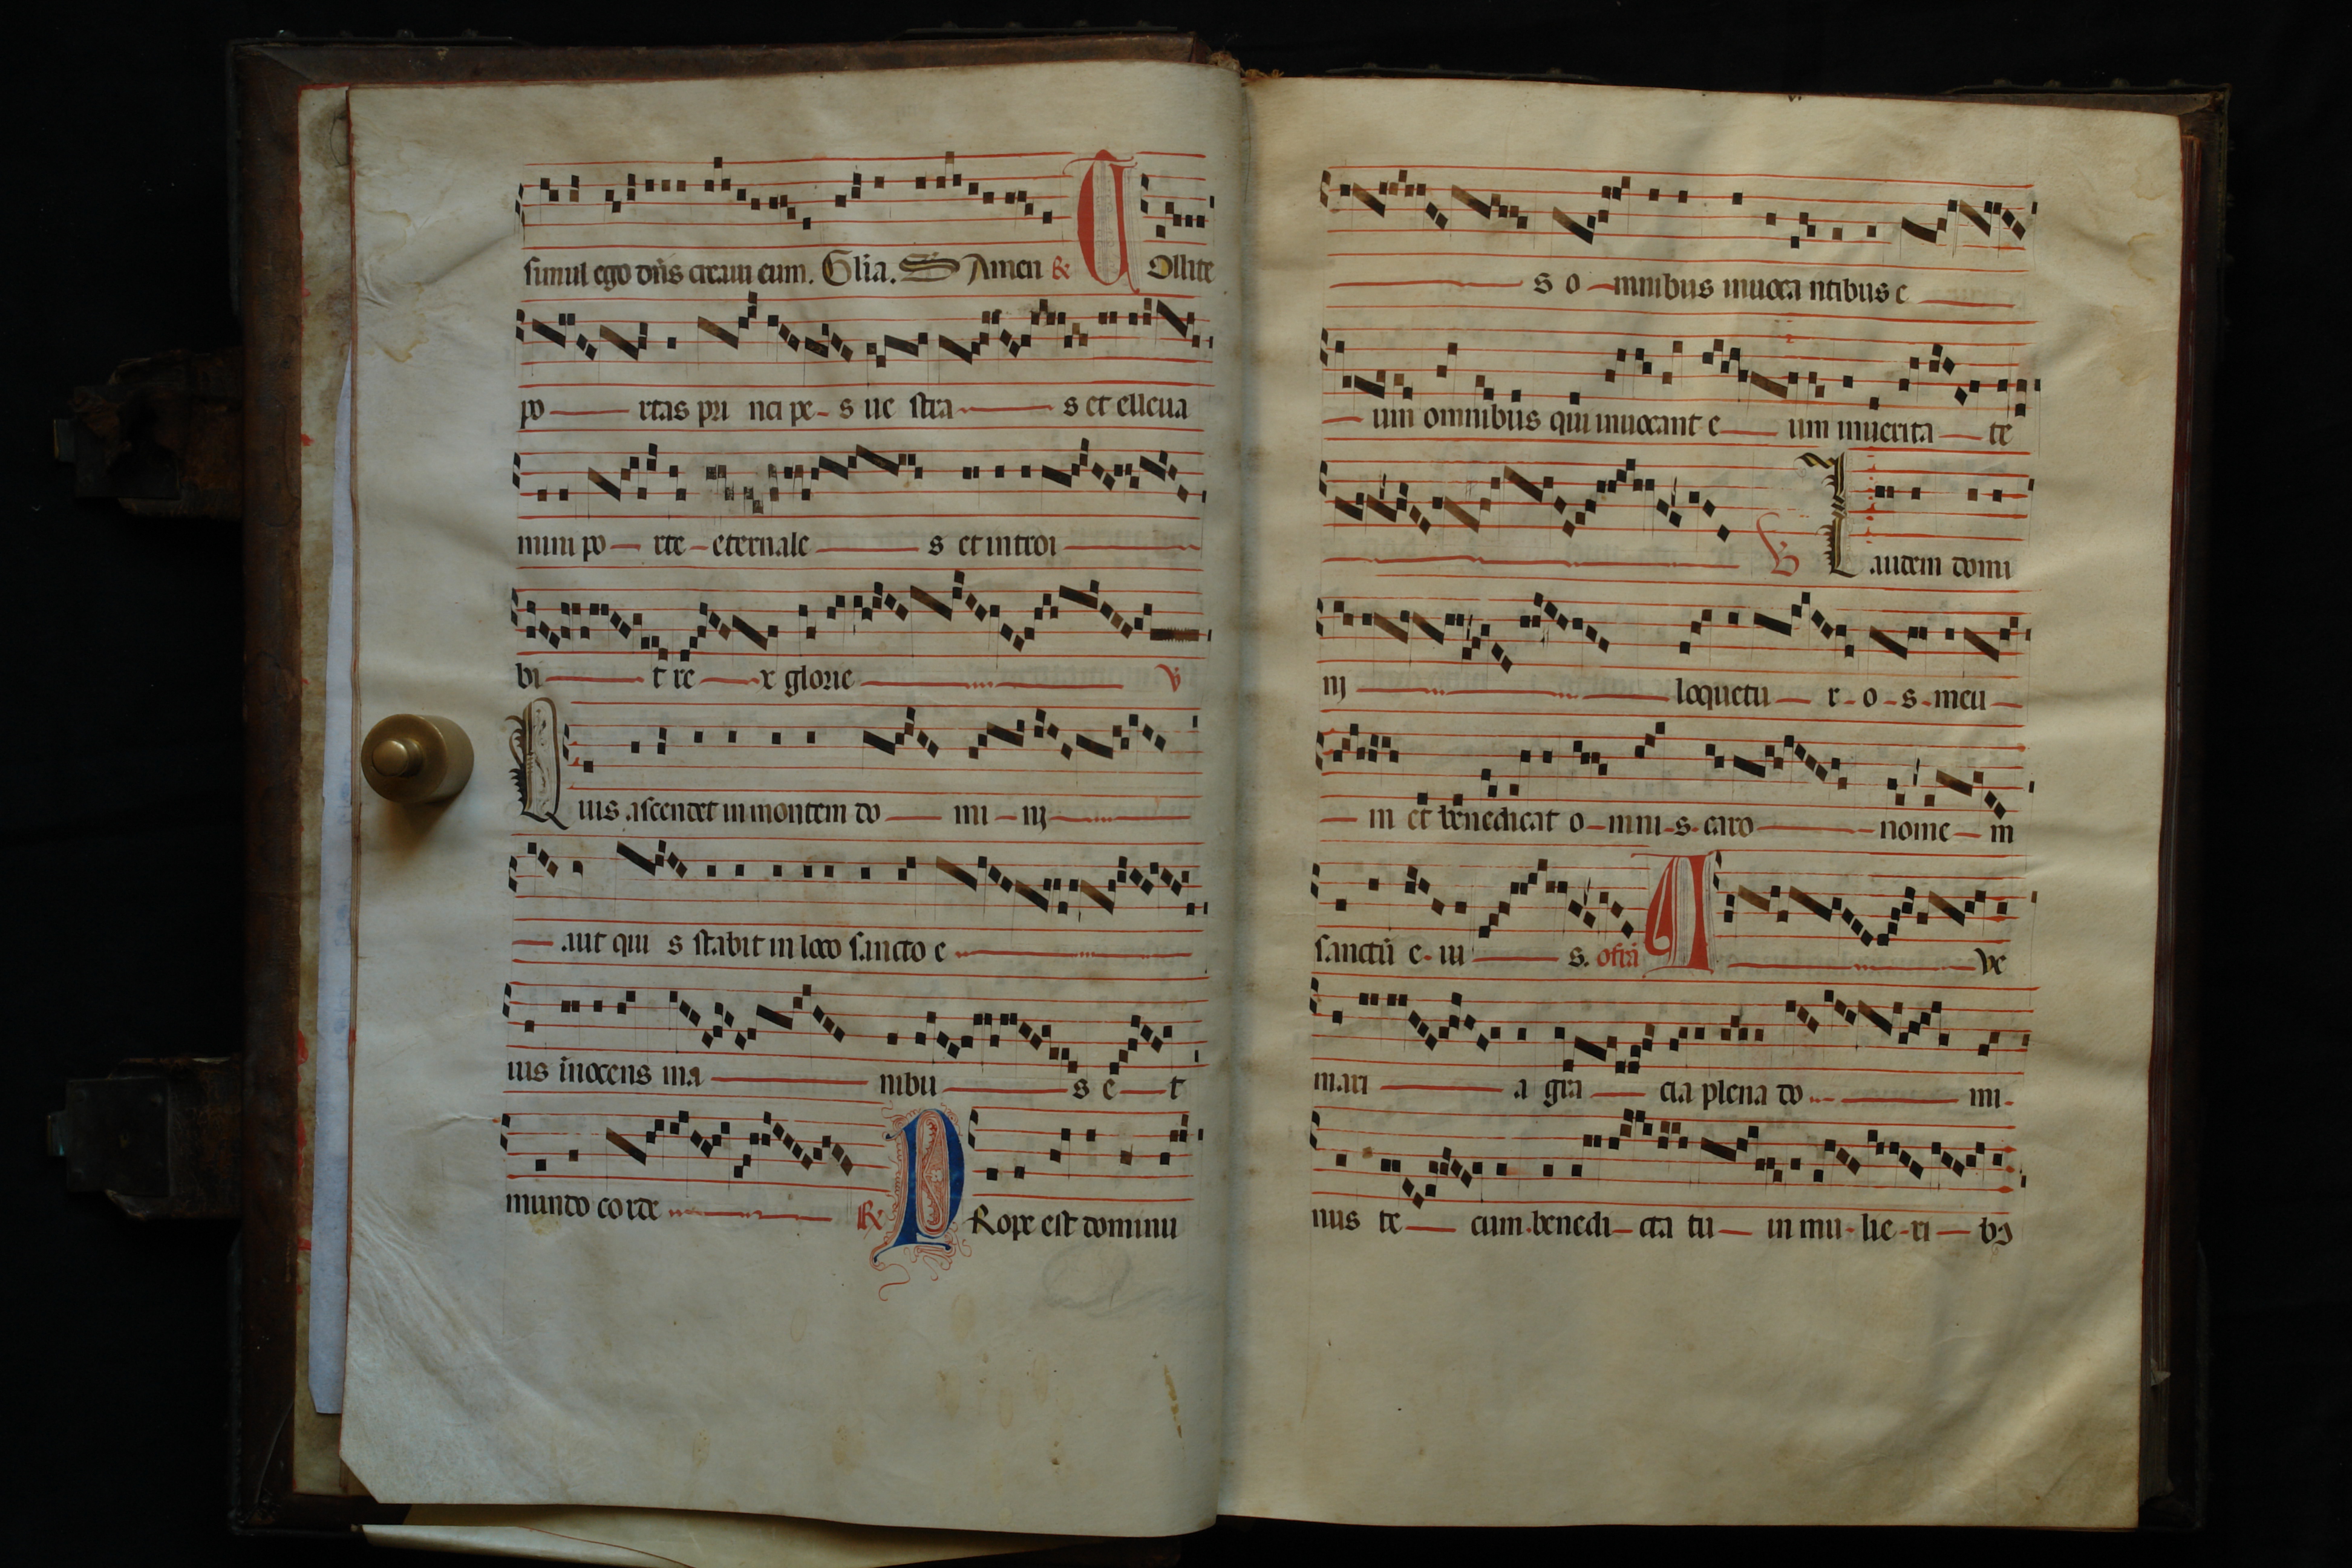 simul ego dñs creaui eum. Glia. S Amen R TOllite
po rtas pri nci pe s ue stra s et elleua
mini po rte eternale s et introi
bi t re x glorie V
Quis ascendet in montem do mi nj
aut qui s stabit in loco sancto e
ius inocens ma nibu s e t
mundo corde R PRope est dominu
s o mnibus inuoca ntibus e
um omnibus qui inuocant e um inuerita te
V Laudem domi
nj loquetu r o s meu
m et benedicat o mni s caro nome m
sanctū e iu s. ofrā A ve
mari a gra cia plena do mi
nus te cum benedi cta tu in mu lie ri bꝫ